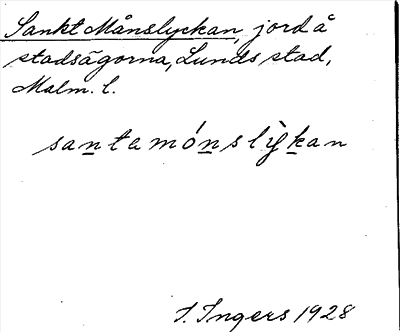 Sankt Månslyckan, jord å
stadsägorna, Lunds stad,
Malm. l.
santemónslỳkan
I. Ingers 1928